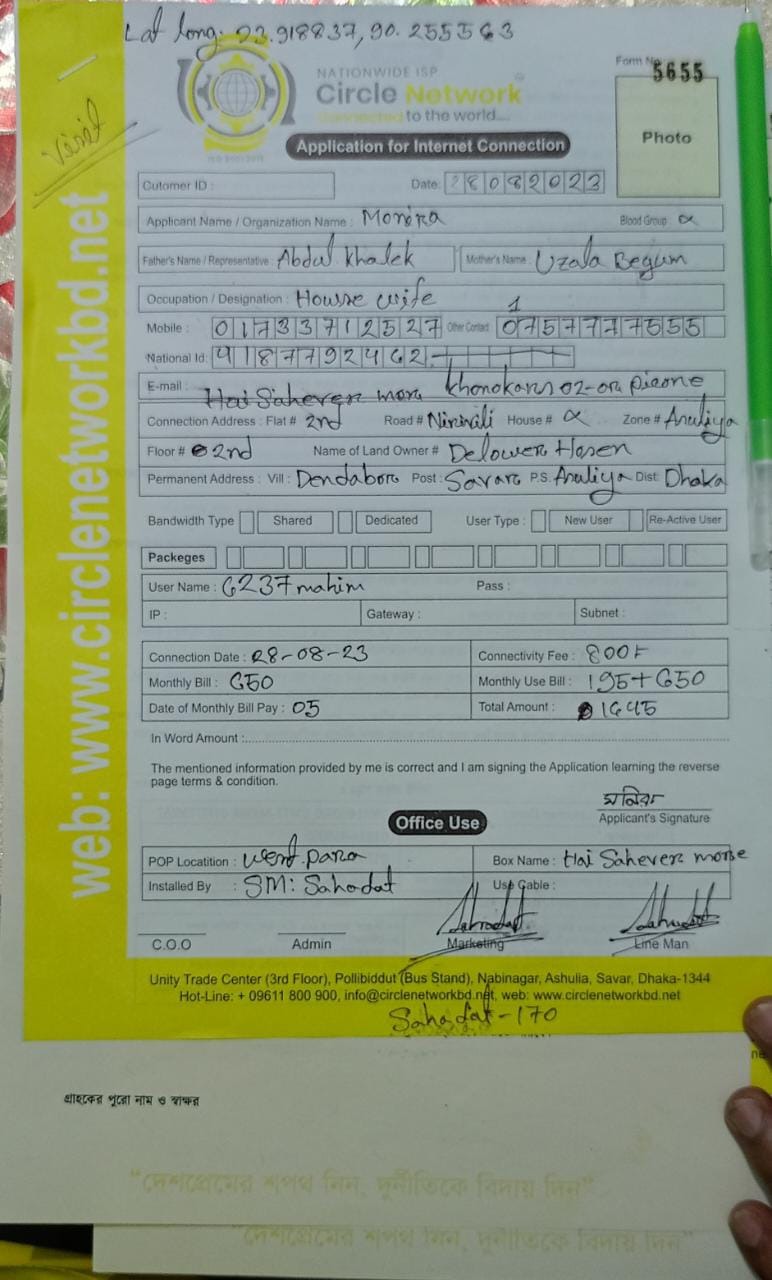 Lat long: 23.918837, 90.255563
Visit
NATIONWIDE ISP
Circle Network
Connected to the world....
ISO 9001:2015
Form No 5655
Photo
Application for Internet Connection
Cutomer ID :
Date: 28082023
Applicant Name / Organization Name : Monira
Blood Group
Father's Name / Representative : Abdul Khalek
Mother's Name : Uzala Begum
Occupation / Designation : House wife
Mobile : 01733712527 Other Contact
National Id: 4187792462
E-mail :
Hai Sahever more
Connection Address : Flat # 2nd Road # Niribili House # Zone #
Floor # 2nd Name of Land Owner # Delower Hosen
Permanent Address : Vill : Dendabor Post : Savar P.S. Dist: Dhaka
Bandwidth Type Shared Dedicated User Type : New User Re-Active User
Packeges
User Name : 6237mahim Pass :
IP : Gateway : Subnet :
Connection Date : 28-08-23 Connectivity Fee : 800
Monthly Bill : 650 Monthly Use Bill : 195+650
Date of Monthly Bill Pay : 05 Total Amount : 1645
In Word Amount :
The mentioned information provided by me is correct and I am signing the Application learning the reverse
page terms & condition.
মনিরা
Applicant's Signature
Office Use
POP Locatition : West para Box Name : Hai Sahever more
Installed By : SM: Sahadat Use Cable :
C.O.O Admin Marketing Line Man
Unity Trade Center (3rd Floor), Pollibiddut (Bus Stand), Nabinagar, Ashulia, Savar, Dhaka-1344
Hot-Line: + 09611 800 900, info@circlenetworkbd.net, web: www.circlenetworkbd.net
Sahadat-170
web: www.circlenetworkbd.net
গ্রাহকের পুরো নাম ও স্বাক্ষর
"দেশপ্রেমের শপথ নিন, দুর্নীতিকে বিদায় দিন"
"দেশপ্রেমের শপথ নিন, দুর্নীতিকে বিদায় দিন"